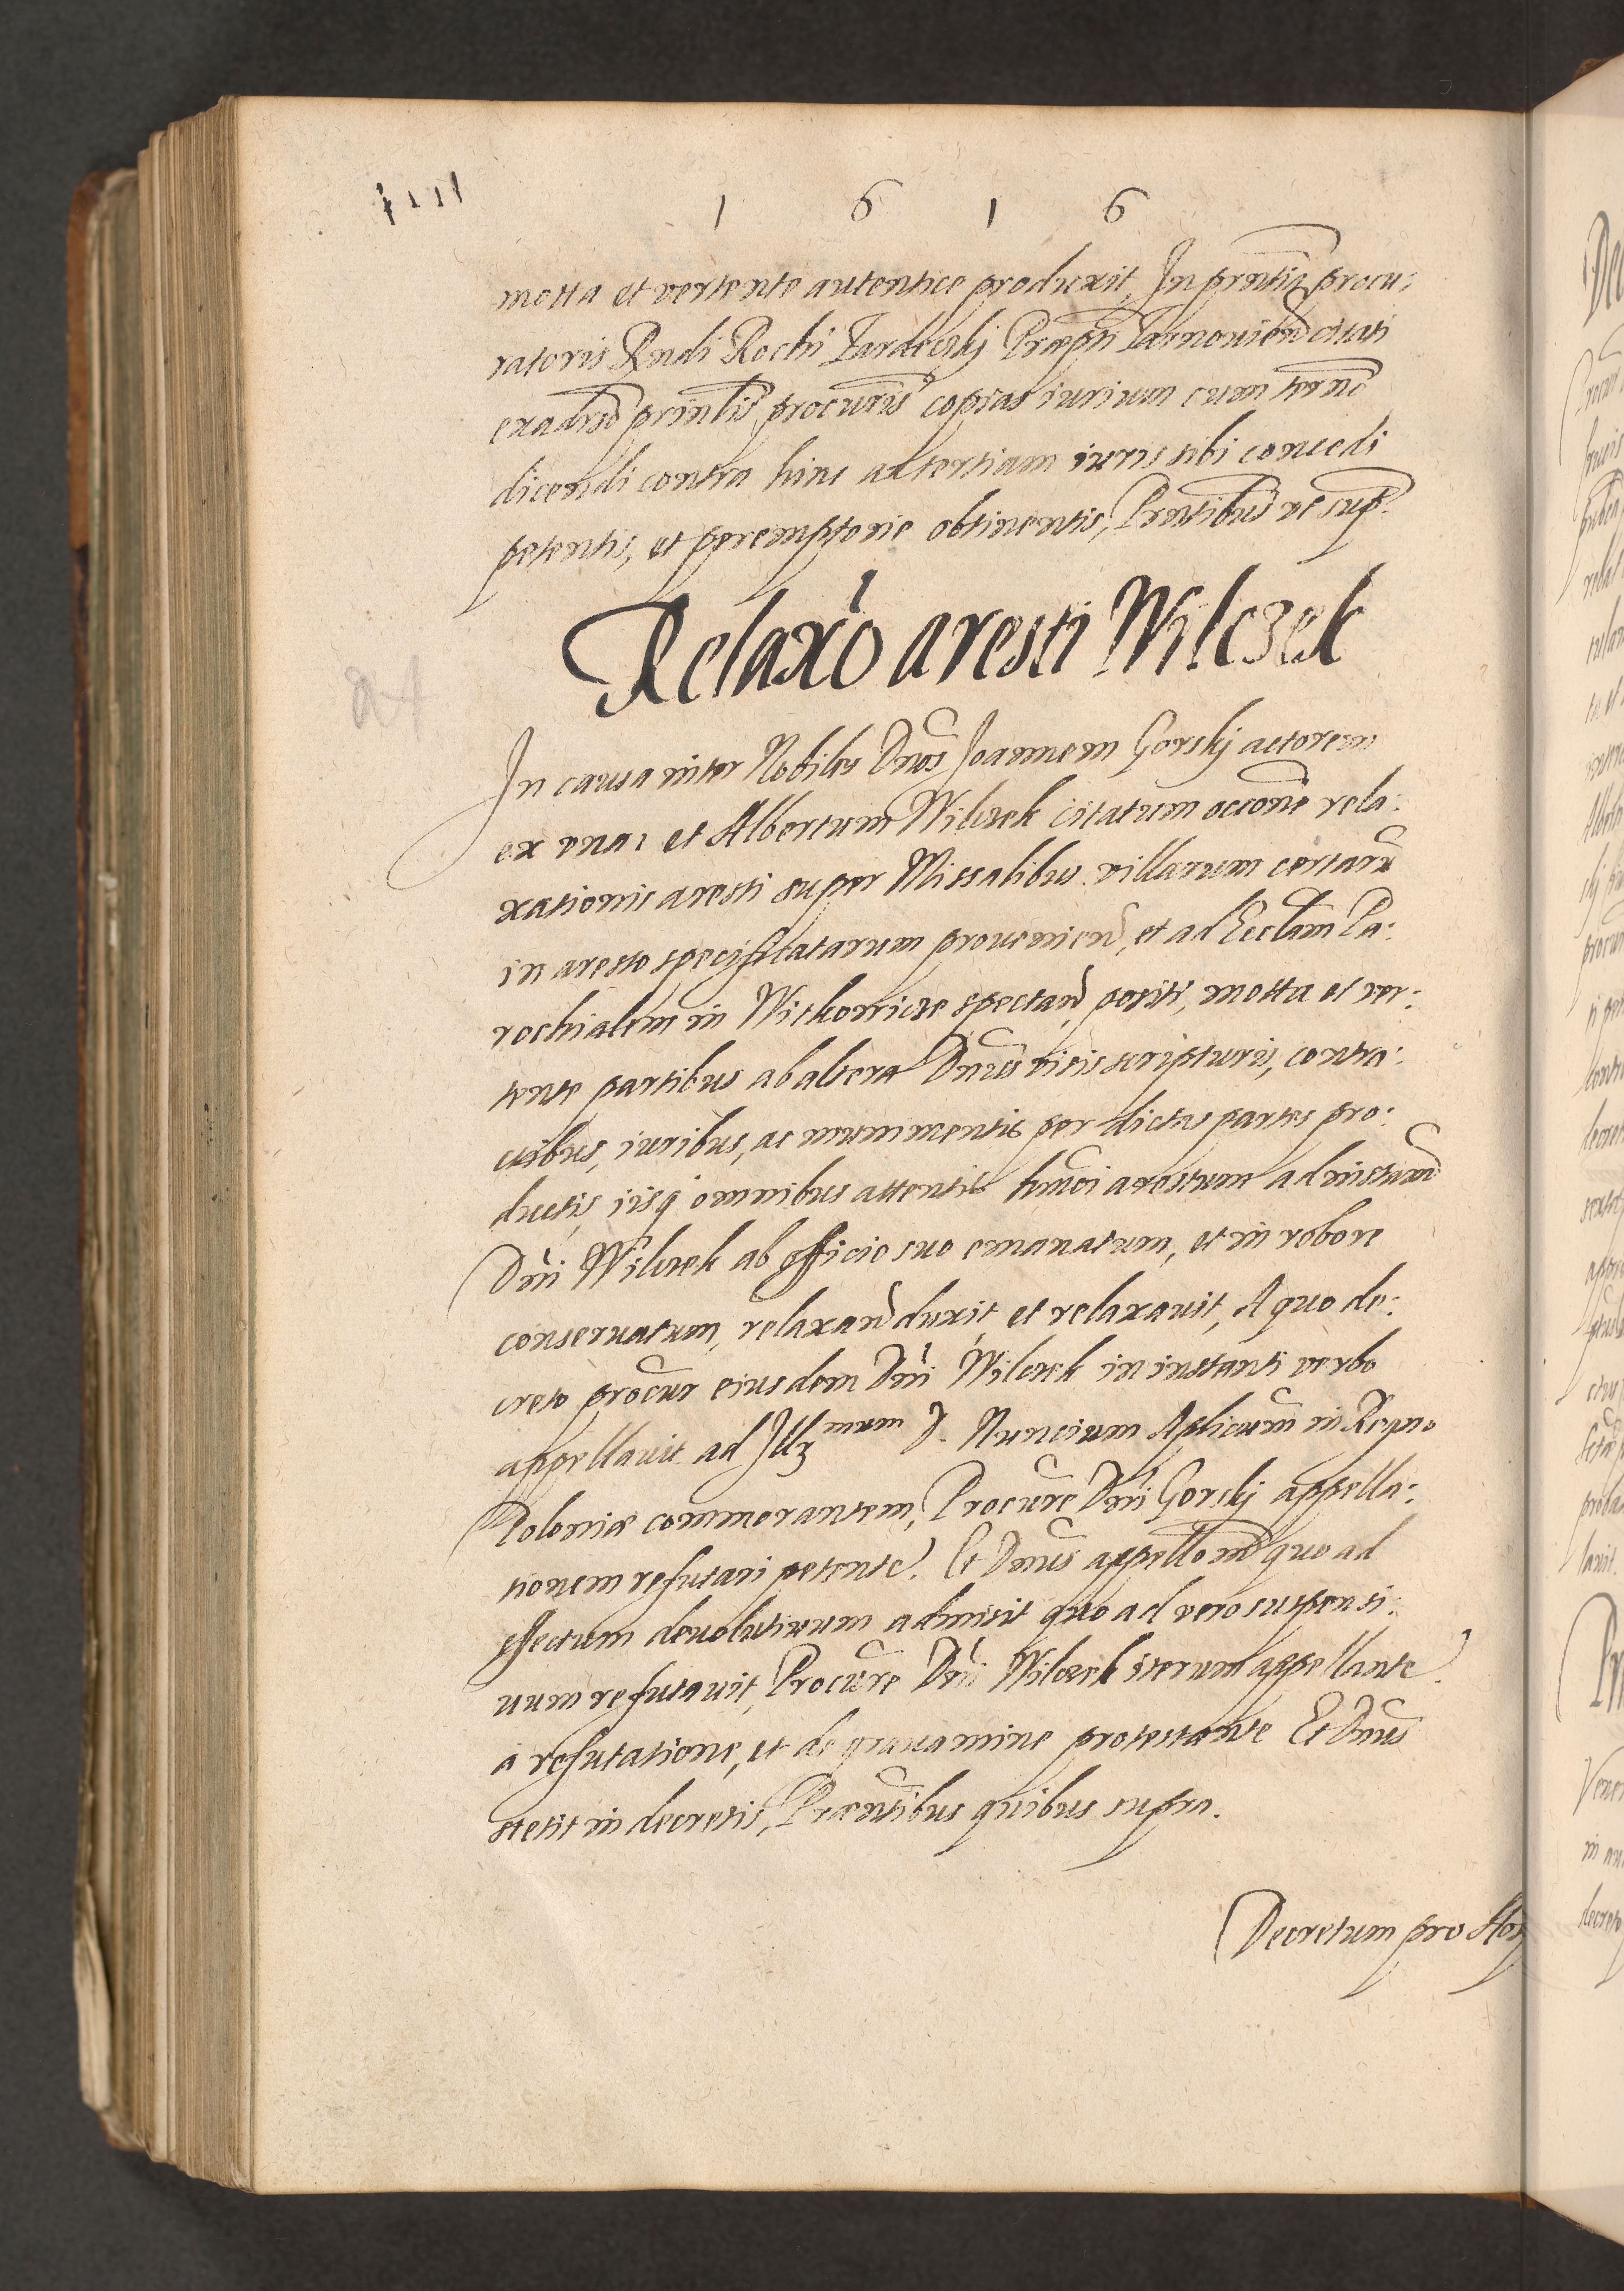 1 6 1 6
motta et vertente autentice produxit, In pr̃ntia procu:
ratoris Rndi Rochi Zardecky Præpti Tarnouien citati
exaduerso prin̄lis procuris copias iurium cum term̄o
dicendi contra hinc ad tertiam iuris sibi concedi
petentis, et peremptorie obtinentis, Pr̄ntibus ut sup̄.
Relax̄o aresti Wilczek
In causa inter Nobiles Dn̄os Joannem Gorskj actorem
ex vna: et Albertum Wilczek citatum occone rela:
xationis aresti super Missalibus villarum certarū
in aresto specifitatarum prouenien̄, et ad Eccl̄am Pa:
rochialem in Witkowicze spectan̄ positi, motta et ver:
tente partibus ab altera Dn̄us visis scripturis, contra:
ctibus, iuribus, ac munimentis per dictas partes pro:
ductis, iisq̄ omnibus attentis hm̄oi arestum ad instan̄
Dn̄i Wilczek ab officio suo emanatum, et in robore
conseruatum, relaxan̄ duxit, et relaxauit, A quo de:
creto procur̄ eiusdem Dn̄i Wilczek in instanti verbo
appellauit ad Illmum D. Nuncium Aplicum̄ in Regno
Poloniæ commorantem, Procūre Dn̄i Gorskj appella:
tionem refutari petente. Et Dn̄us appellonēm quo ad
effectum deuolutiuum admisit quo ad vero suspensi:
uum refutauit, Procūre Dn̄i Wilczek iterum appellante
a refutatione, et de grauamine protestante Et Dn̄us
stetit in decretis, Præn̄tibus quibus supra.
Decretum pro